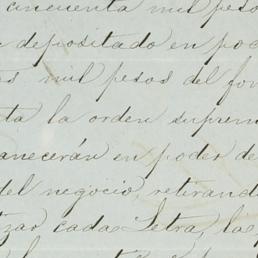 cincuenta mil pesos
depositado en pod
mil pesos del fon
ta la orden suprem
anecerán en poder de
del negocio, retirand
zar cada Letra, la